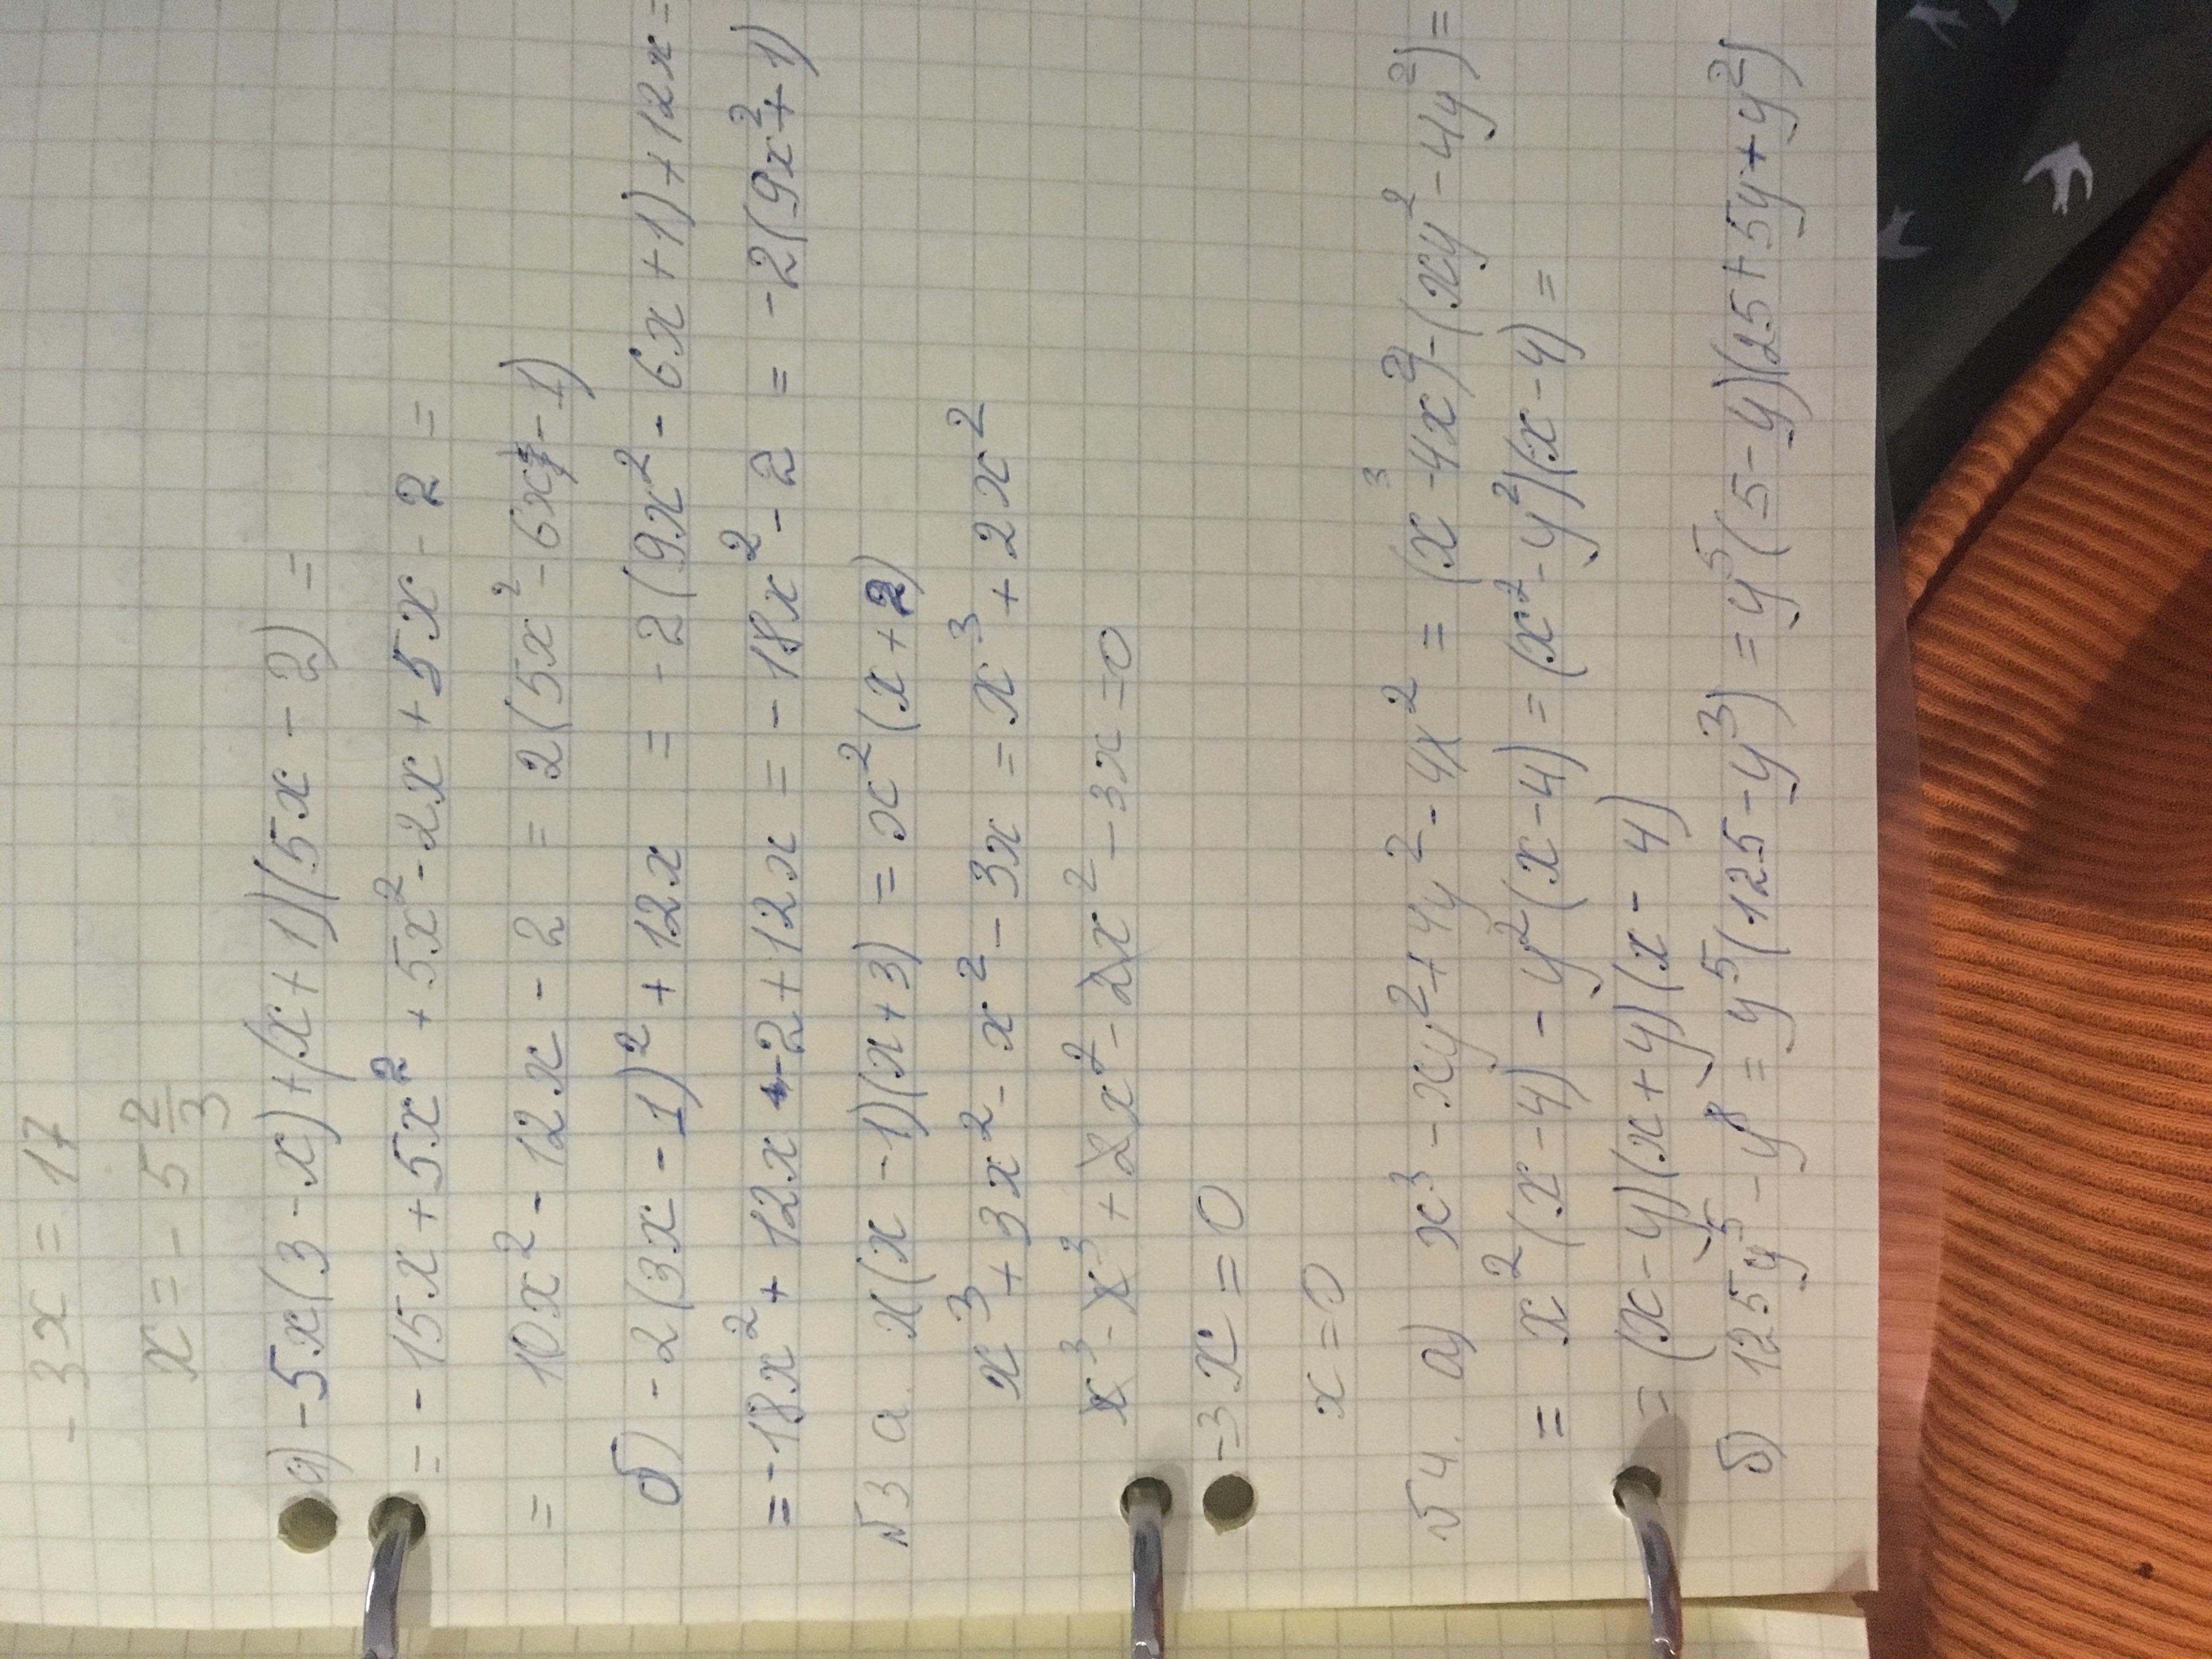 - 3x = 17
x = - 5 2/3
а) -5x(3 - x) + (x + 1)(5x - 2) =
= - 15x + 5x² + 5x² - 2x + 5x - 2 =
= 10x² - 12x - 2 = 2(5x² - 6x - 1)
б) - 2(3x - 1)² + 12x = - 2(9x² - 6x + 1) + 12x =
= -18x² + 12x - 2 + 12x = - 18x² - 2 = -2(9x² + 1)
№3 а. x(x - 1)(x + 3) = x²(x + 2)
x³ + 3x² - x² - 3x = x³ + 2x²
x³ - x³ + 2x² - 2x² - 3x = 0
-3x = 0
x = 0
№4. а) x³ - xy² + 4y² - 4x² = (x³ - 4x²) - (xy² - 4y²) =
= x²(x - 4) - y²(x - 4) = (x² - y²)(x - 4) =
= (x - y)(x + y)(x - 4)
б) 125y⁵ - y⁸ = y⁵(125 - y³) = y⁵(5 - y)(25 + 5y + y²)